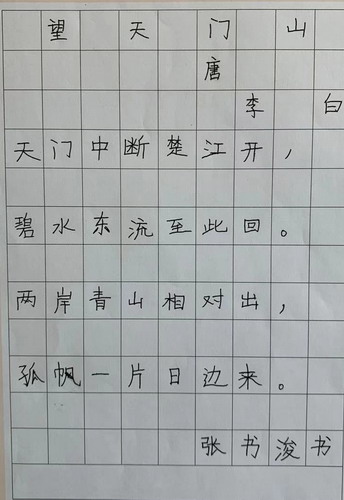 望天门山
唐
李白
天门中断楚江开，
碧水东流至此回。
两岸青山相对出，
孤帆一片日边来。
张书浚书